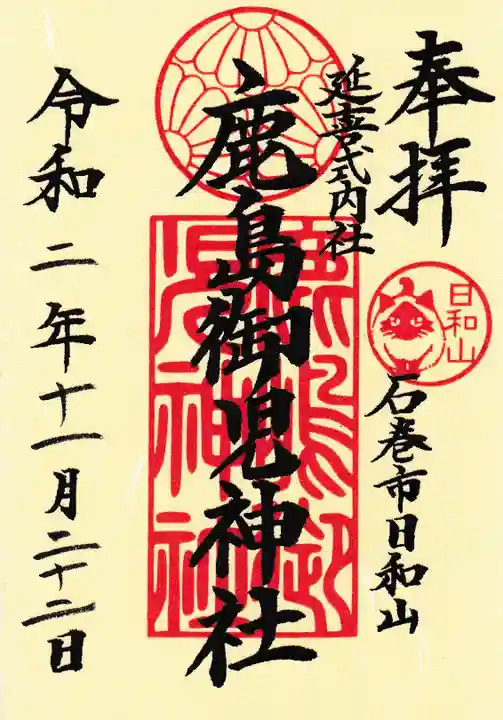 奉拝
延喜式内社
日和山
石巻市日和山
鹿島御児神社
鹿嶋御
児神社
令和二年十一月二十二日